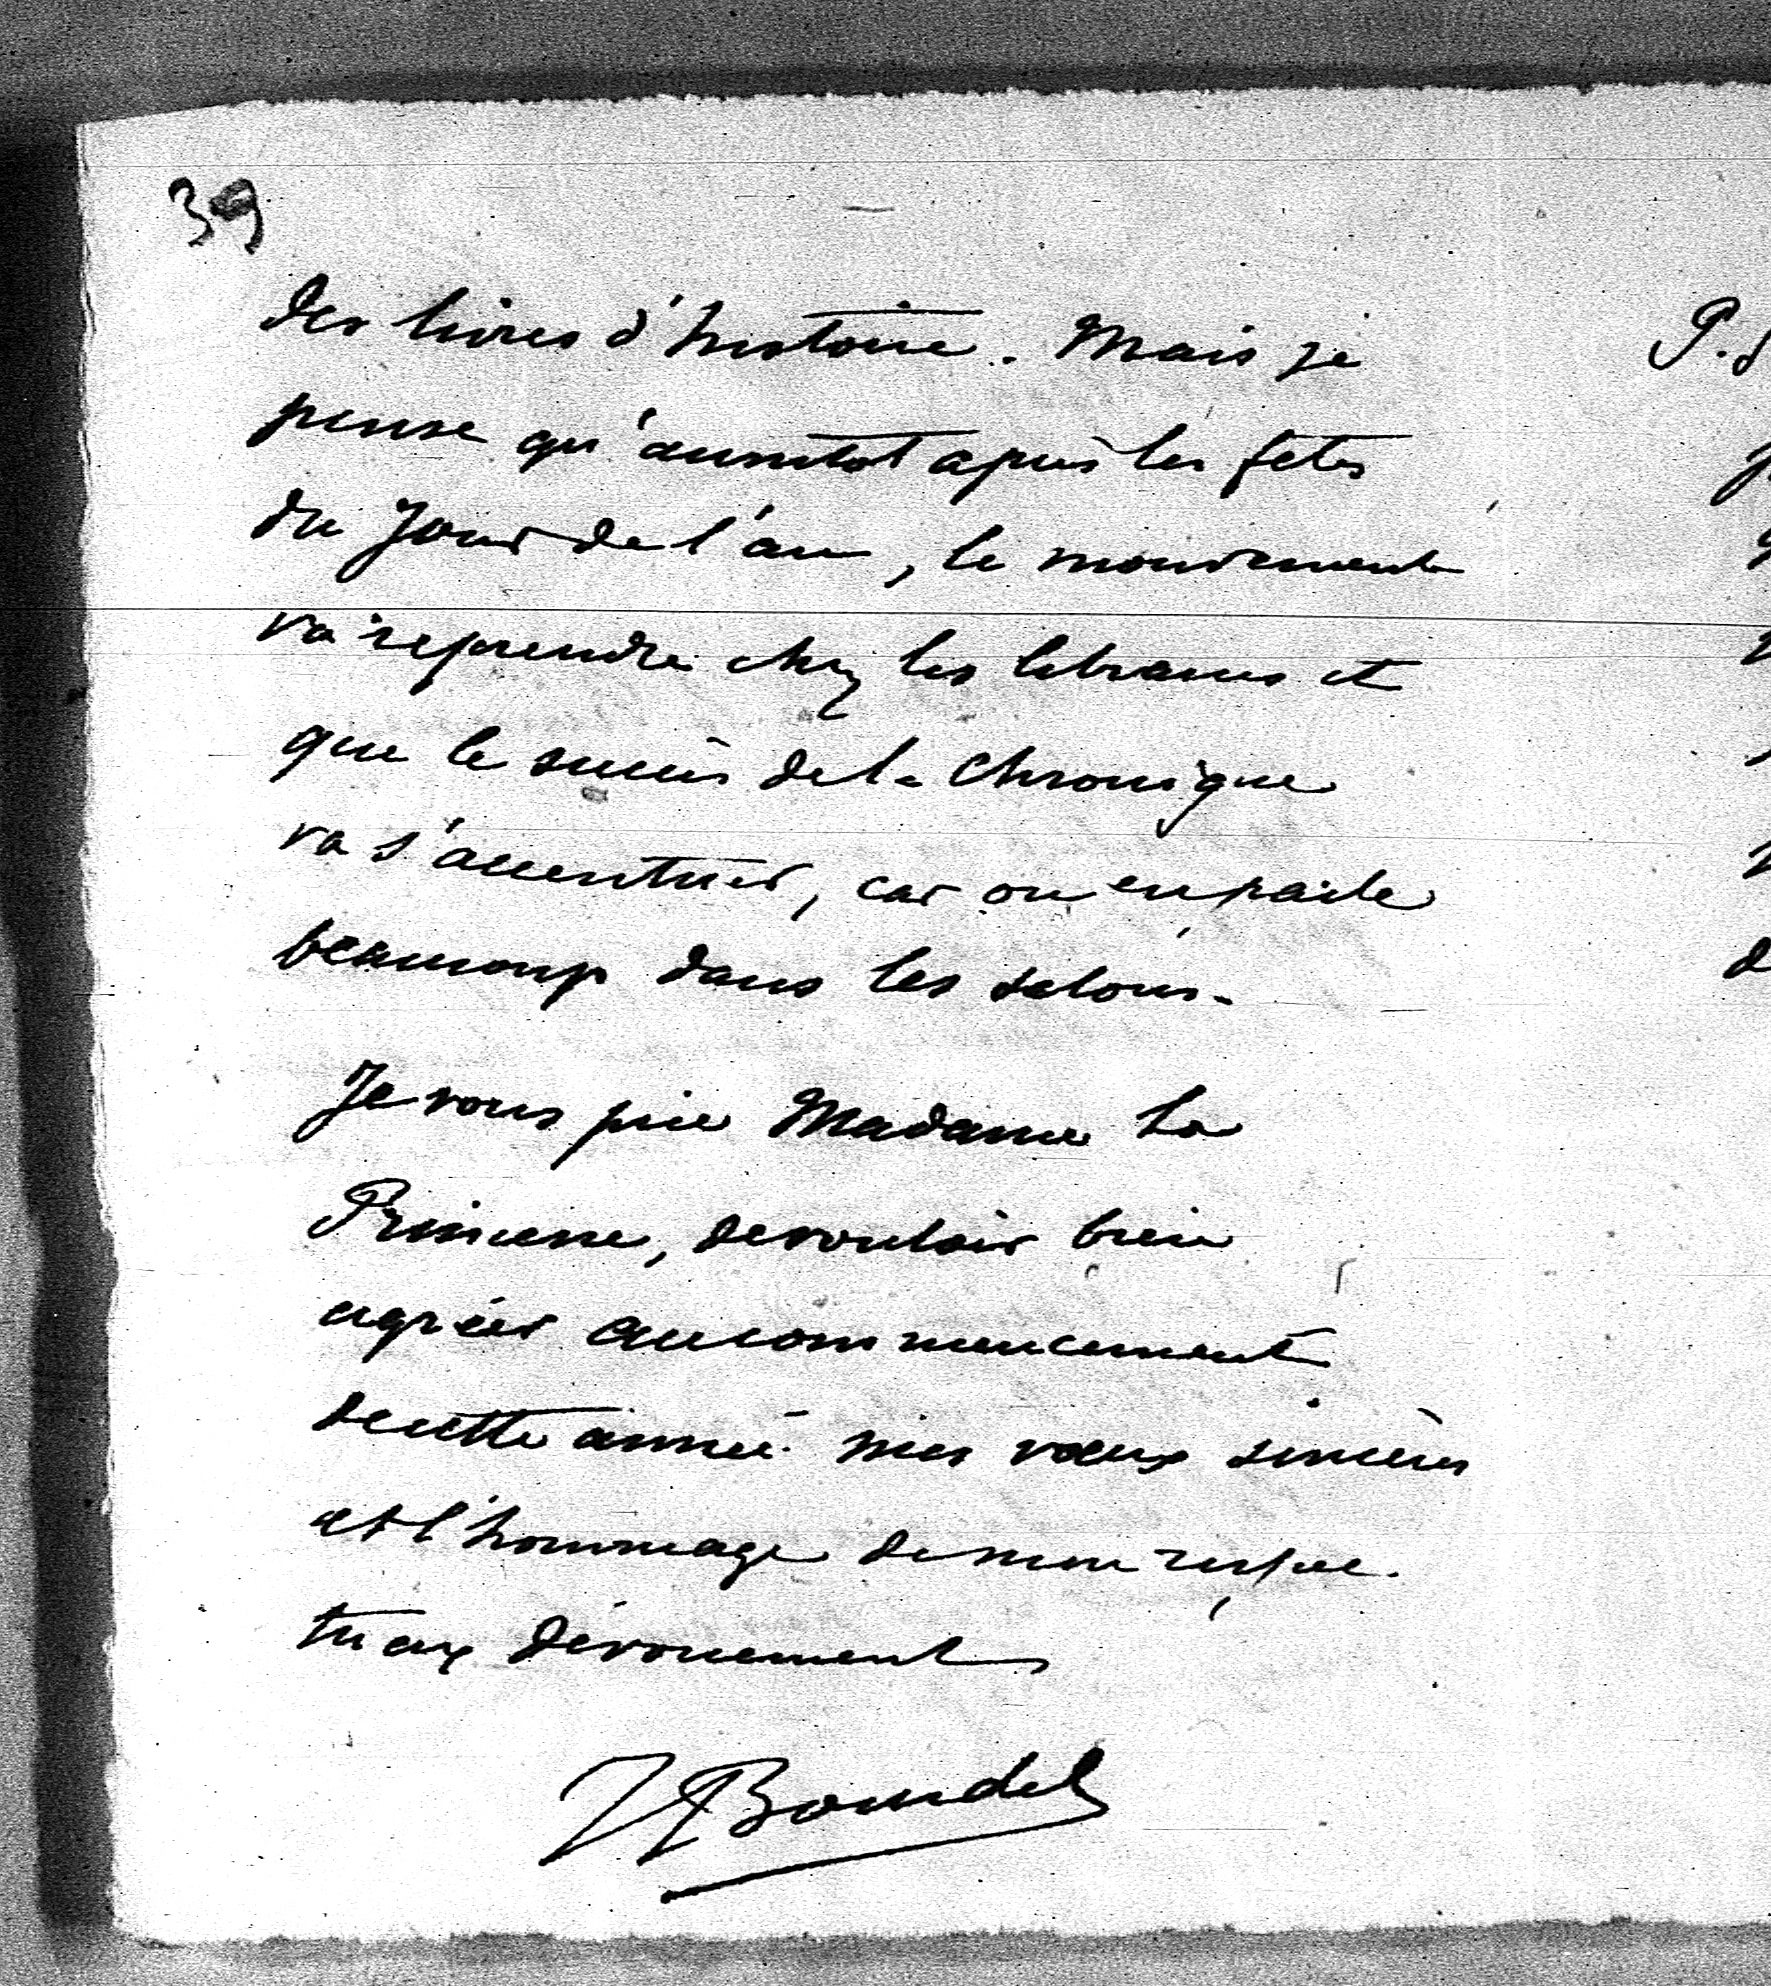 39
des livres d'histoire. Mais je
pense qu'aussitot après les fetes
du Jour de l'an, le mouvement
va reprendre chez les libraires et
que le succès de la Chronique
va s'accentuer, car on en parle
beaucoup dans les salons.
Je vous prie Madame la
Princesse, de vouloir bien
agréer au commencement
de cette année mes vœux sincères
et l'hommage de mon respec-
tueux dévouement
P.S